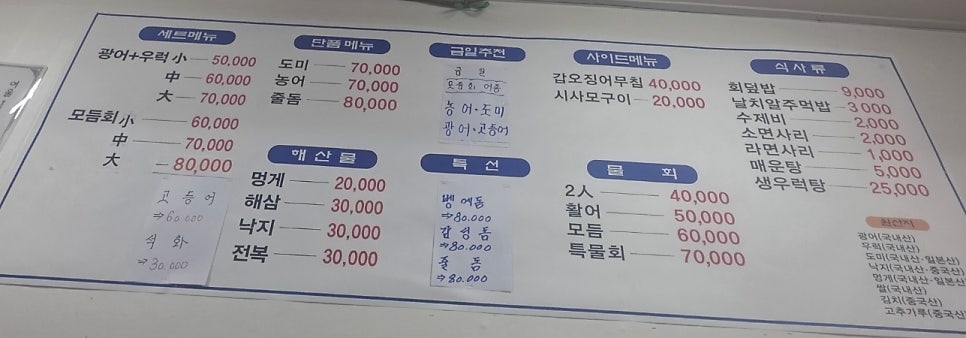 세트메뉴
광어+우럭 小 50,000
中 60,000
大 70,000
모듬회 小 60,000
中 70,000
大 80,000
고등어
⇒60.000
석화
⇒30.000
단품메뉴
도미 70,000
농어 70,000
줄돔 80,000
해산물
멍게 20,000
해삼 30,000
낙지 30,000
전복 30,000
금일추천
금일
모듬회 어종
농어·도미
광어·고등어
특선
벵에돔
⇒80.000
감성돔
⇒80.000
줄돔
⇒80.000
사이드메뉴
갑오징어무침 40,000
시사모구이 20,000
물회
2人 40,000
활어 50,000
모듬 60,000
특물회 70,000
식사류
회덮밥 9,000
날치알주먹밥 3000
수제비 2,000
소면사리 2,000
라면사리 1,000
매운탕 5,000
생우럭탕 25,000
원산지
광어(국내산)
우럭(국내산)
도미(국내산·일본산)
낙지(국내산·중국산)
멍게(국내산·일본산
쌀(국내산)
김치(중국산)
고추가루(중국산)